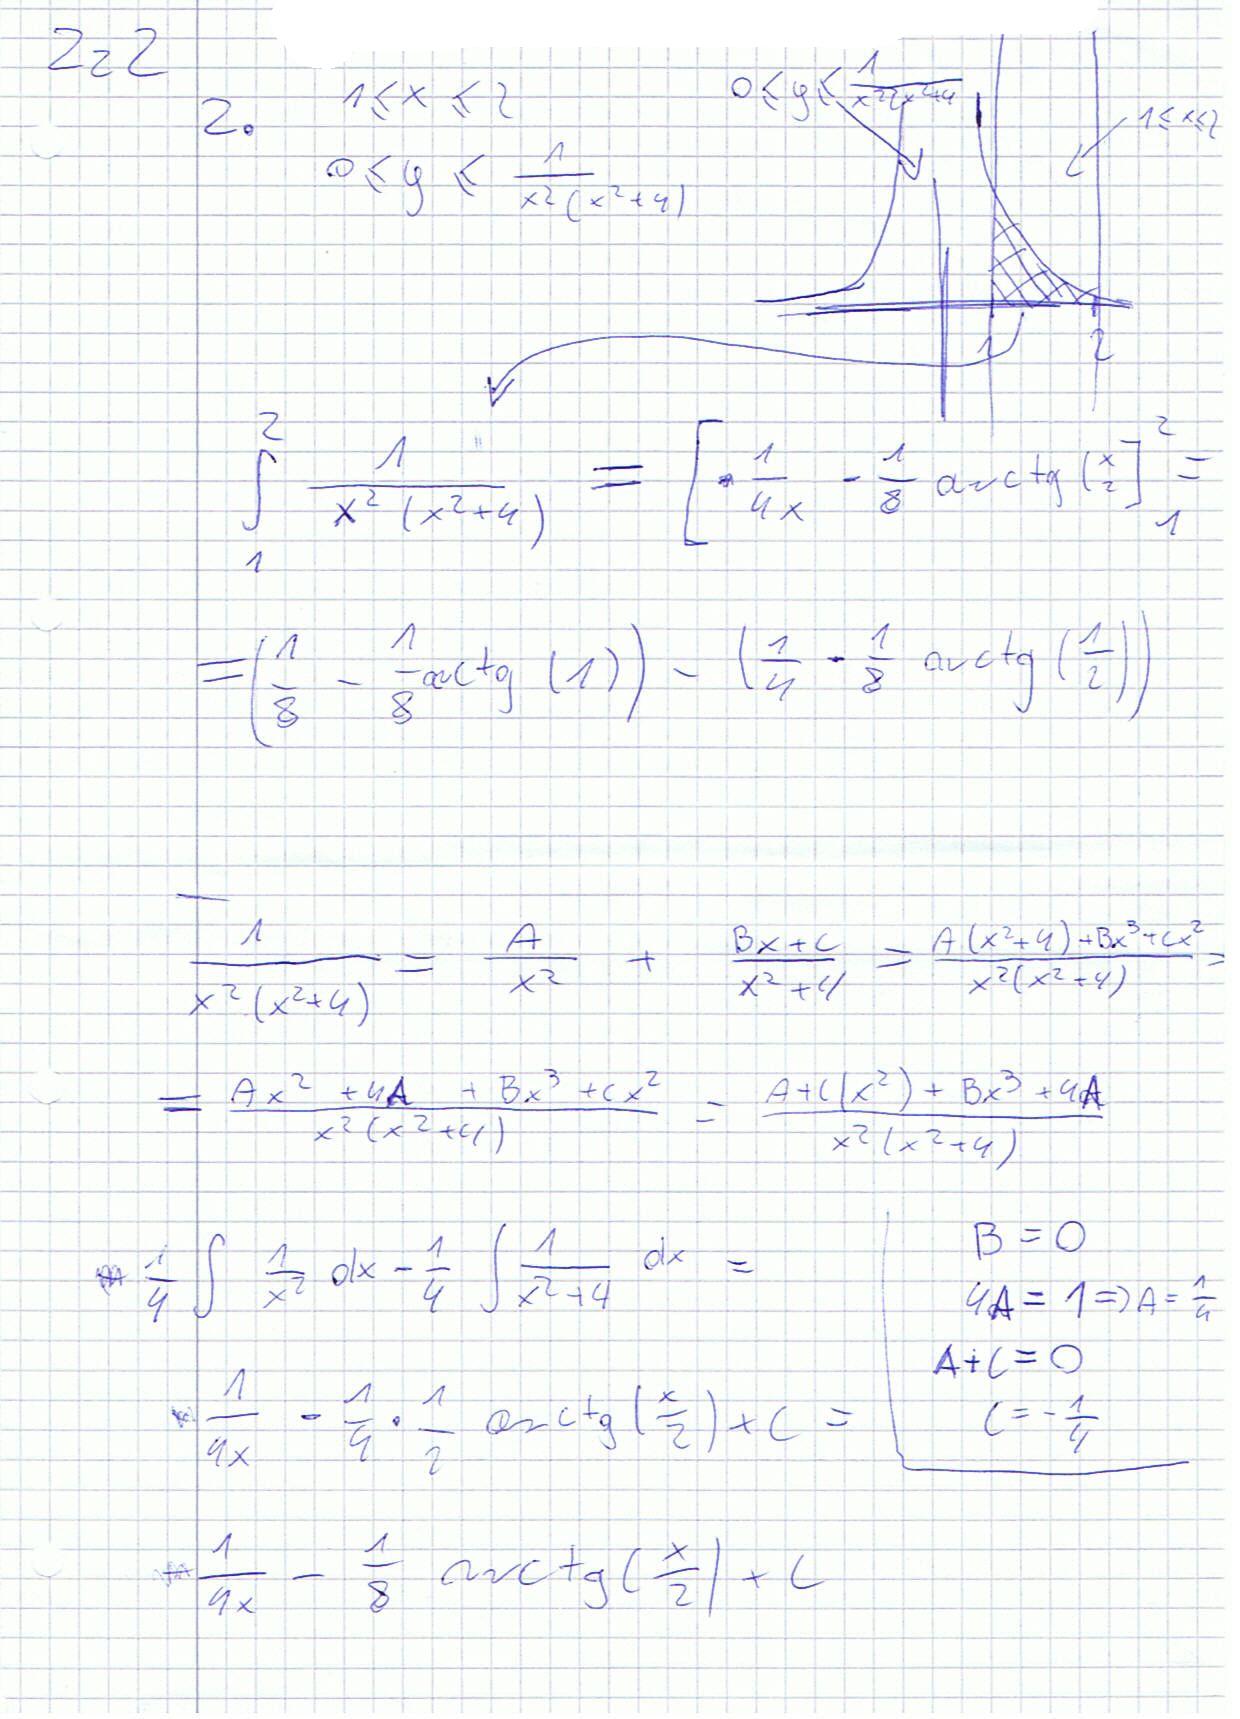 ZZ2
2. 1 ≤ x ≤ 2
0 ≤ y ≤ 1/(x²(x²+4))
0 ≤ y ≤ 1/(x²(x²+4)
1 ≤ x ≤ 2
1 2
∫₁² 1/(x²(x²+4)) = [1/(4x) - 1/8 arctg(x/2]₁² =
= (1/8 - 1/8 arctg(1)) - (1/4 - 1/8 arctg(1/2))
1/(x²(x²+4)) = A/x² + (Bx+C)/(x²+4) = (A(x²+4)+Bx³+Cx²)/(x²(x²+4)) =
= (Ax²+4A+Bx³+Cx²)/(x²(x²+4)) = (A+C(x²)+Bx³+4A)/(x²(x²+4))
1/4 ∫ 1/x² dx - 1/4 ∫ 1/(x²+4) dx =
1/(4x) - 1/4 · 1/2 arctg(x/2) + C =
1/(4x) - 1/8 arctg(x/2) + C
B = 0
4A = 1 => A = 1/4
A+C = 0
C = -1/4